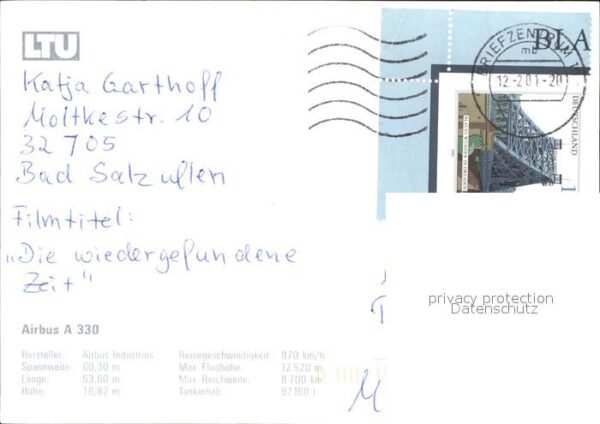 LTU
BLA
BRIEFZENTRUM
mb
12.-2.01-20
DEUTSCHLAND
Katja Garthoff
Moltkestr. 10
32 705
Bad Salzuflen
Filmtitel:
„Die wiedergefundene
Zeit"
privacy protection
Datenschutz
Airbus A 330
Hersteller: Airbus Industries Reisegeschwindigkeit: 870 km/h
Spannweite: 60,30 m Max. Flughöhe: 12 520 m
Länge: 63,60 m Max. Reichweite: 8 700 km
Höhe: 16,82 m Tankinhalt: 97100 l